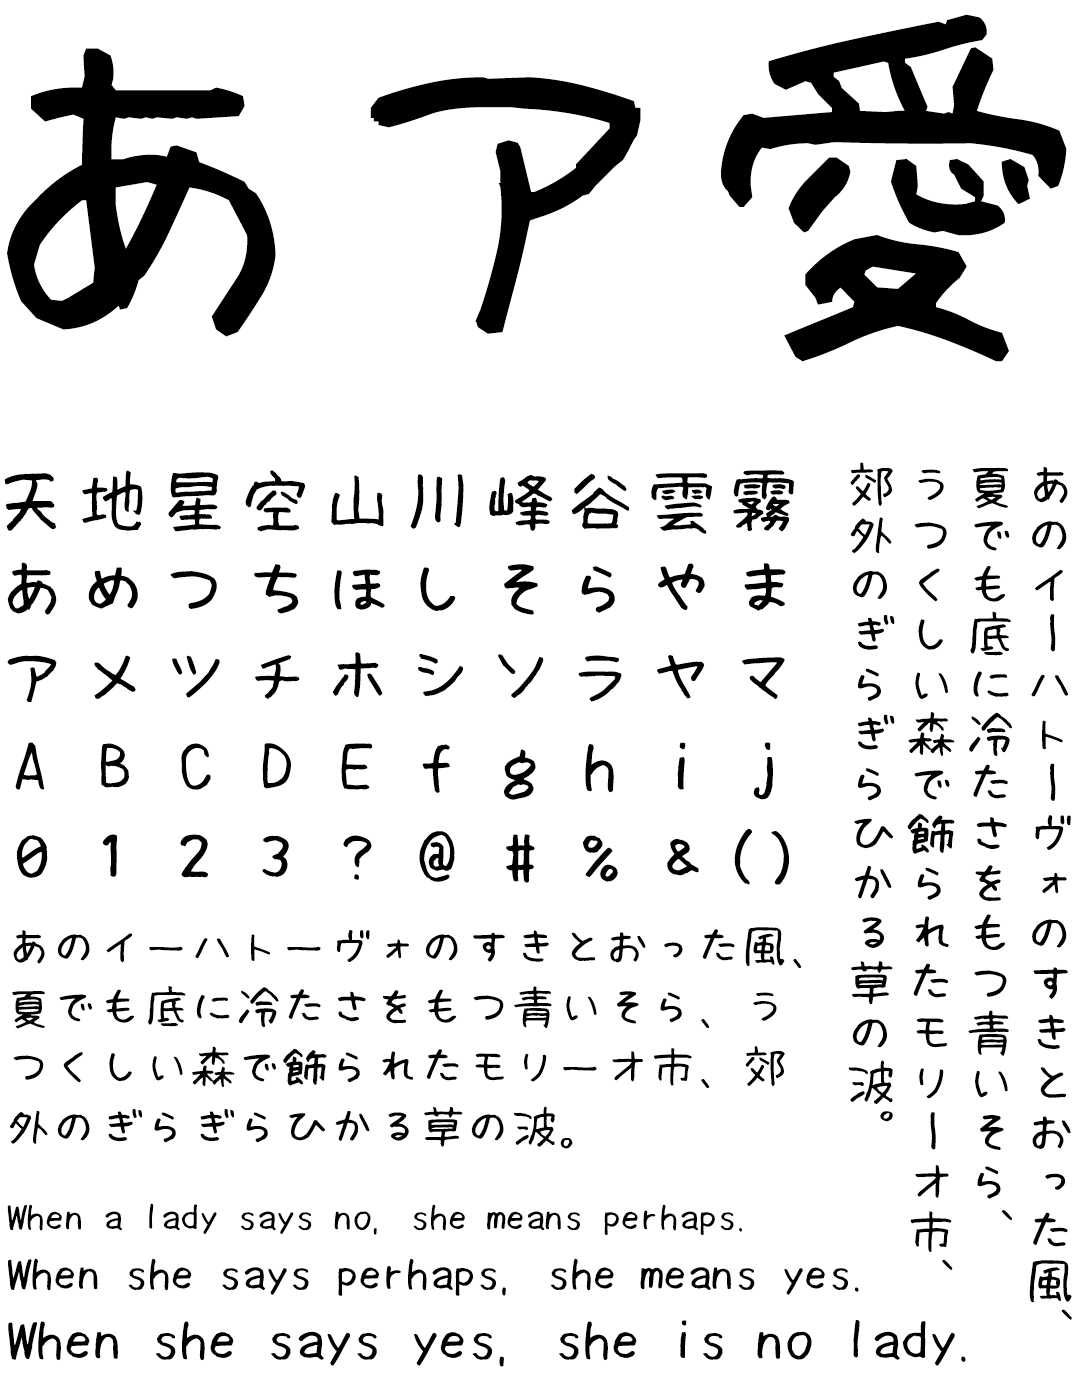 あ ア 愛
天 地 星 空 山 川 峰 谷 雲 霧
あ め つ ち ほ し そ ら や ま
ア メ ツ チ ホ シ ソ ラ ヤ マ
A B C D E f g h i j
0 1 2 3 ? @ # % & ( )
あのイーハトーヴォのすきとおった風、
夏でも底に冷たさをもつ青いそら、う
つくしい森で飾られたモリーオ市、郊
外のぎらぎらひかる草の波。
When a lady says no, she means perhaps.
When she says perhaps, she means yes.
When she says yes, she is no lady.
あのイーハトーヴォのすきとおった風、
夏でも底に冷たさをもつ青いそら、
うつくしい森で飾られたモリーオ市、
郊外のぎらぎらひかる草の波。